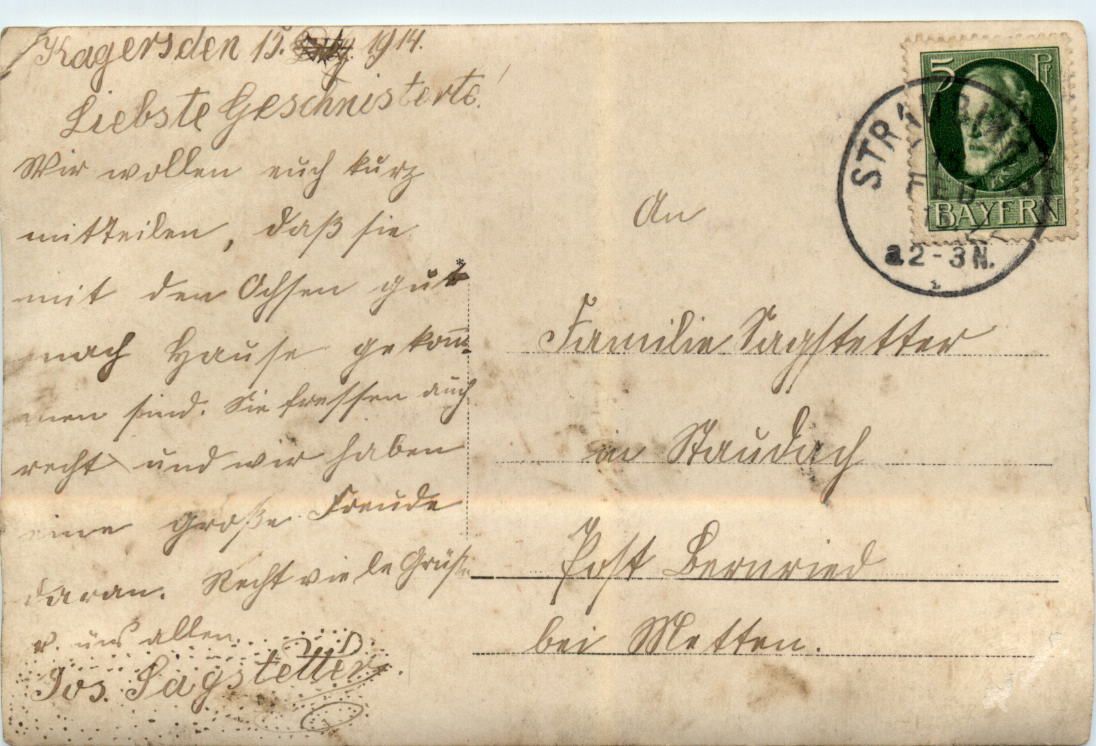 Kagers den 15. 1914.
Liebste Geschwisterte!
Wir wollen euch kurz
mitteilen, daß sie
mit den Ochsen gut
nach Hause gekom̅-
men sind. Sie fressen auch
recht und wir haben
eine große Freude
daran. Recht viele Grüße
v. uns allen.
Jos. Sagstetter.
5 Pf
BAYERN
STRAUBING
a 2-3 N.
An
Familie Sagstetter
in Staudach
Post Bernried
bei Metten.